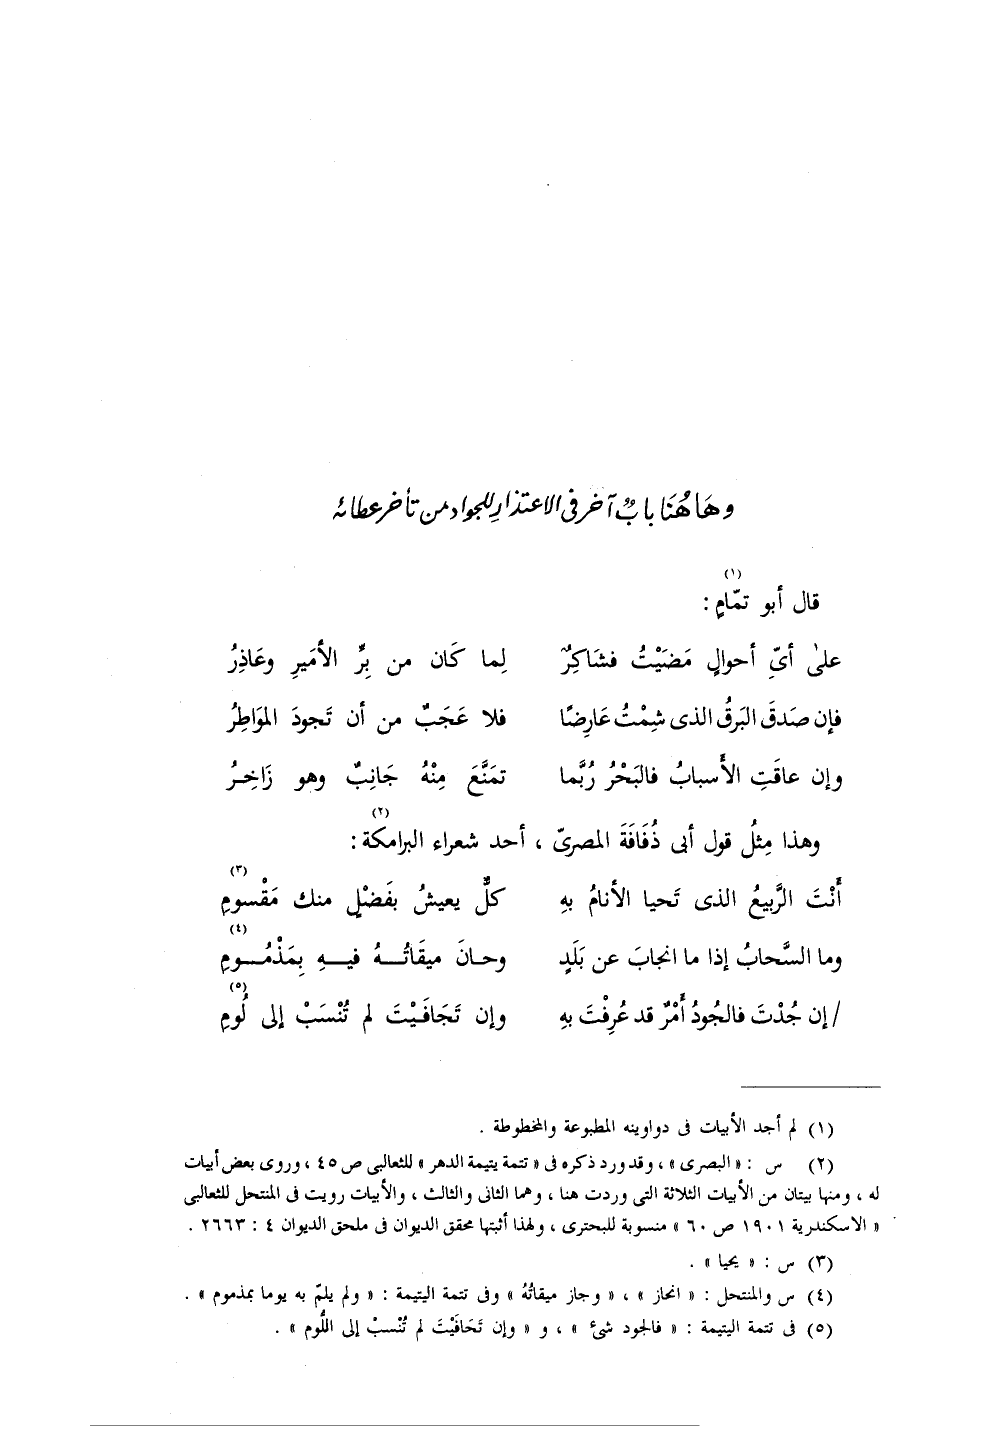 وهَاهُنَا بابٌ آخر فى الاعتذار للجواد من تأخر عطائه
(١)
قال أبو تمّامٍ :
علىٰ أىِّ أحوالٍ مَضَيْتُ فشَاكِرٌ لِما كَان من بِرٍّ الأمَيرِ وعَاذِرُ
فإن صَدقَ البَرقُ الذى شِمْتُ عَارِضًا فلا عَجَبٌ من أن تَجودَ الموَاطِرُ
وإن عاقَتِ الأَسبابُ فالبَحْرُ رُبَّما تمَنَّعَ مِنْهُ جَانِبٌ وهو زَاخِرُ
(٢)
وهذا مِثلُ قول أبى ذُفَافَةَ المصرىّ ، أحد شعراء البرامكة :
(٣)
أَنْتَ الرَّبيعُ الذى تَحيا الأنامُ بهِ كلٌّ يعيشُ بفَضْلٍ منك مَقْسومِ
(٤)
وما السَّحابُ إذا ما انجابَ عن بَلَدٍ وحـانَ ميقَاتُـــهُ فيـــهِ بِمَذْمُـــومِ
(٥)
/ إن جُدْتَ فالجُودُ أَمْرٌ قد عُرِفْتَ بهِ وإن تَجَافَـيْتَ لم تُنْسَبْ إلى لُومِ
(١) لم أجد الأبيات فى دواوينه المطبوعة والمخطوطة .
(٢) س : « البصرى » ، وقد ورد ذكره فى « تتمة يتيمة الدهر » للثعالبى ص ٤٥ ، وروى بعض أبيات
له ، ومنها بيتان من الأبيات الثلاثة التى وردت هنا ، وهما الثانى والثالث ، والأبيات رويت فى المنتحل للثعالبى
« الاسكندرية ١٩٠١ ص ٦٠ » منسوبة للبحترى ، ولهذا أثبتها محقق الديوان فى ملحق الديوان ٤ : ٢٦٦٣ .
(٣) س : « يحيا » .
(٤) س والمنتحل : « انحاز » ، « وجاز ميقاتُهُ » وفى تتمة اليتيمة : « ولم يلمّ به يوما بمذموم » .
(٥) فى تتمة اليتيمة : « فالجود شئ » ، و « وإن تَحَافَيْتَ لم تُنْسبْ إلى اللُّوم » .